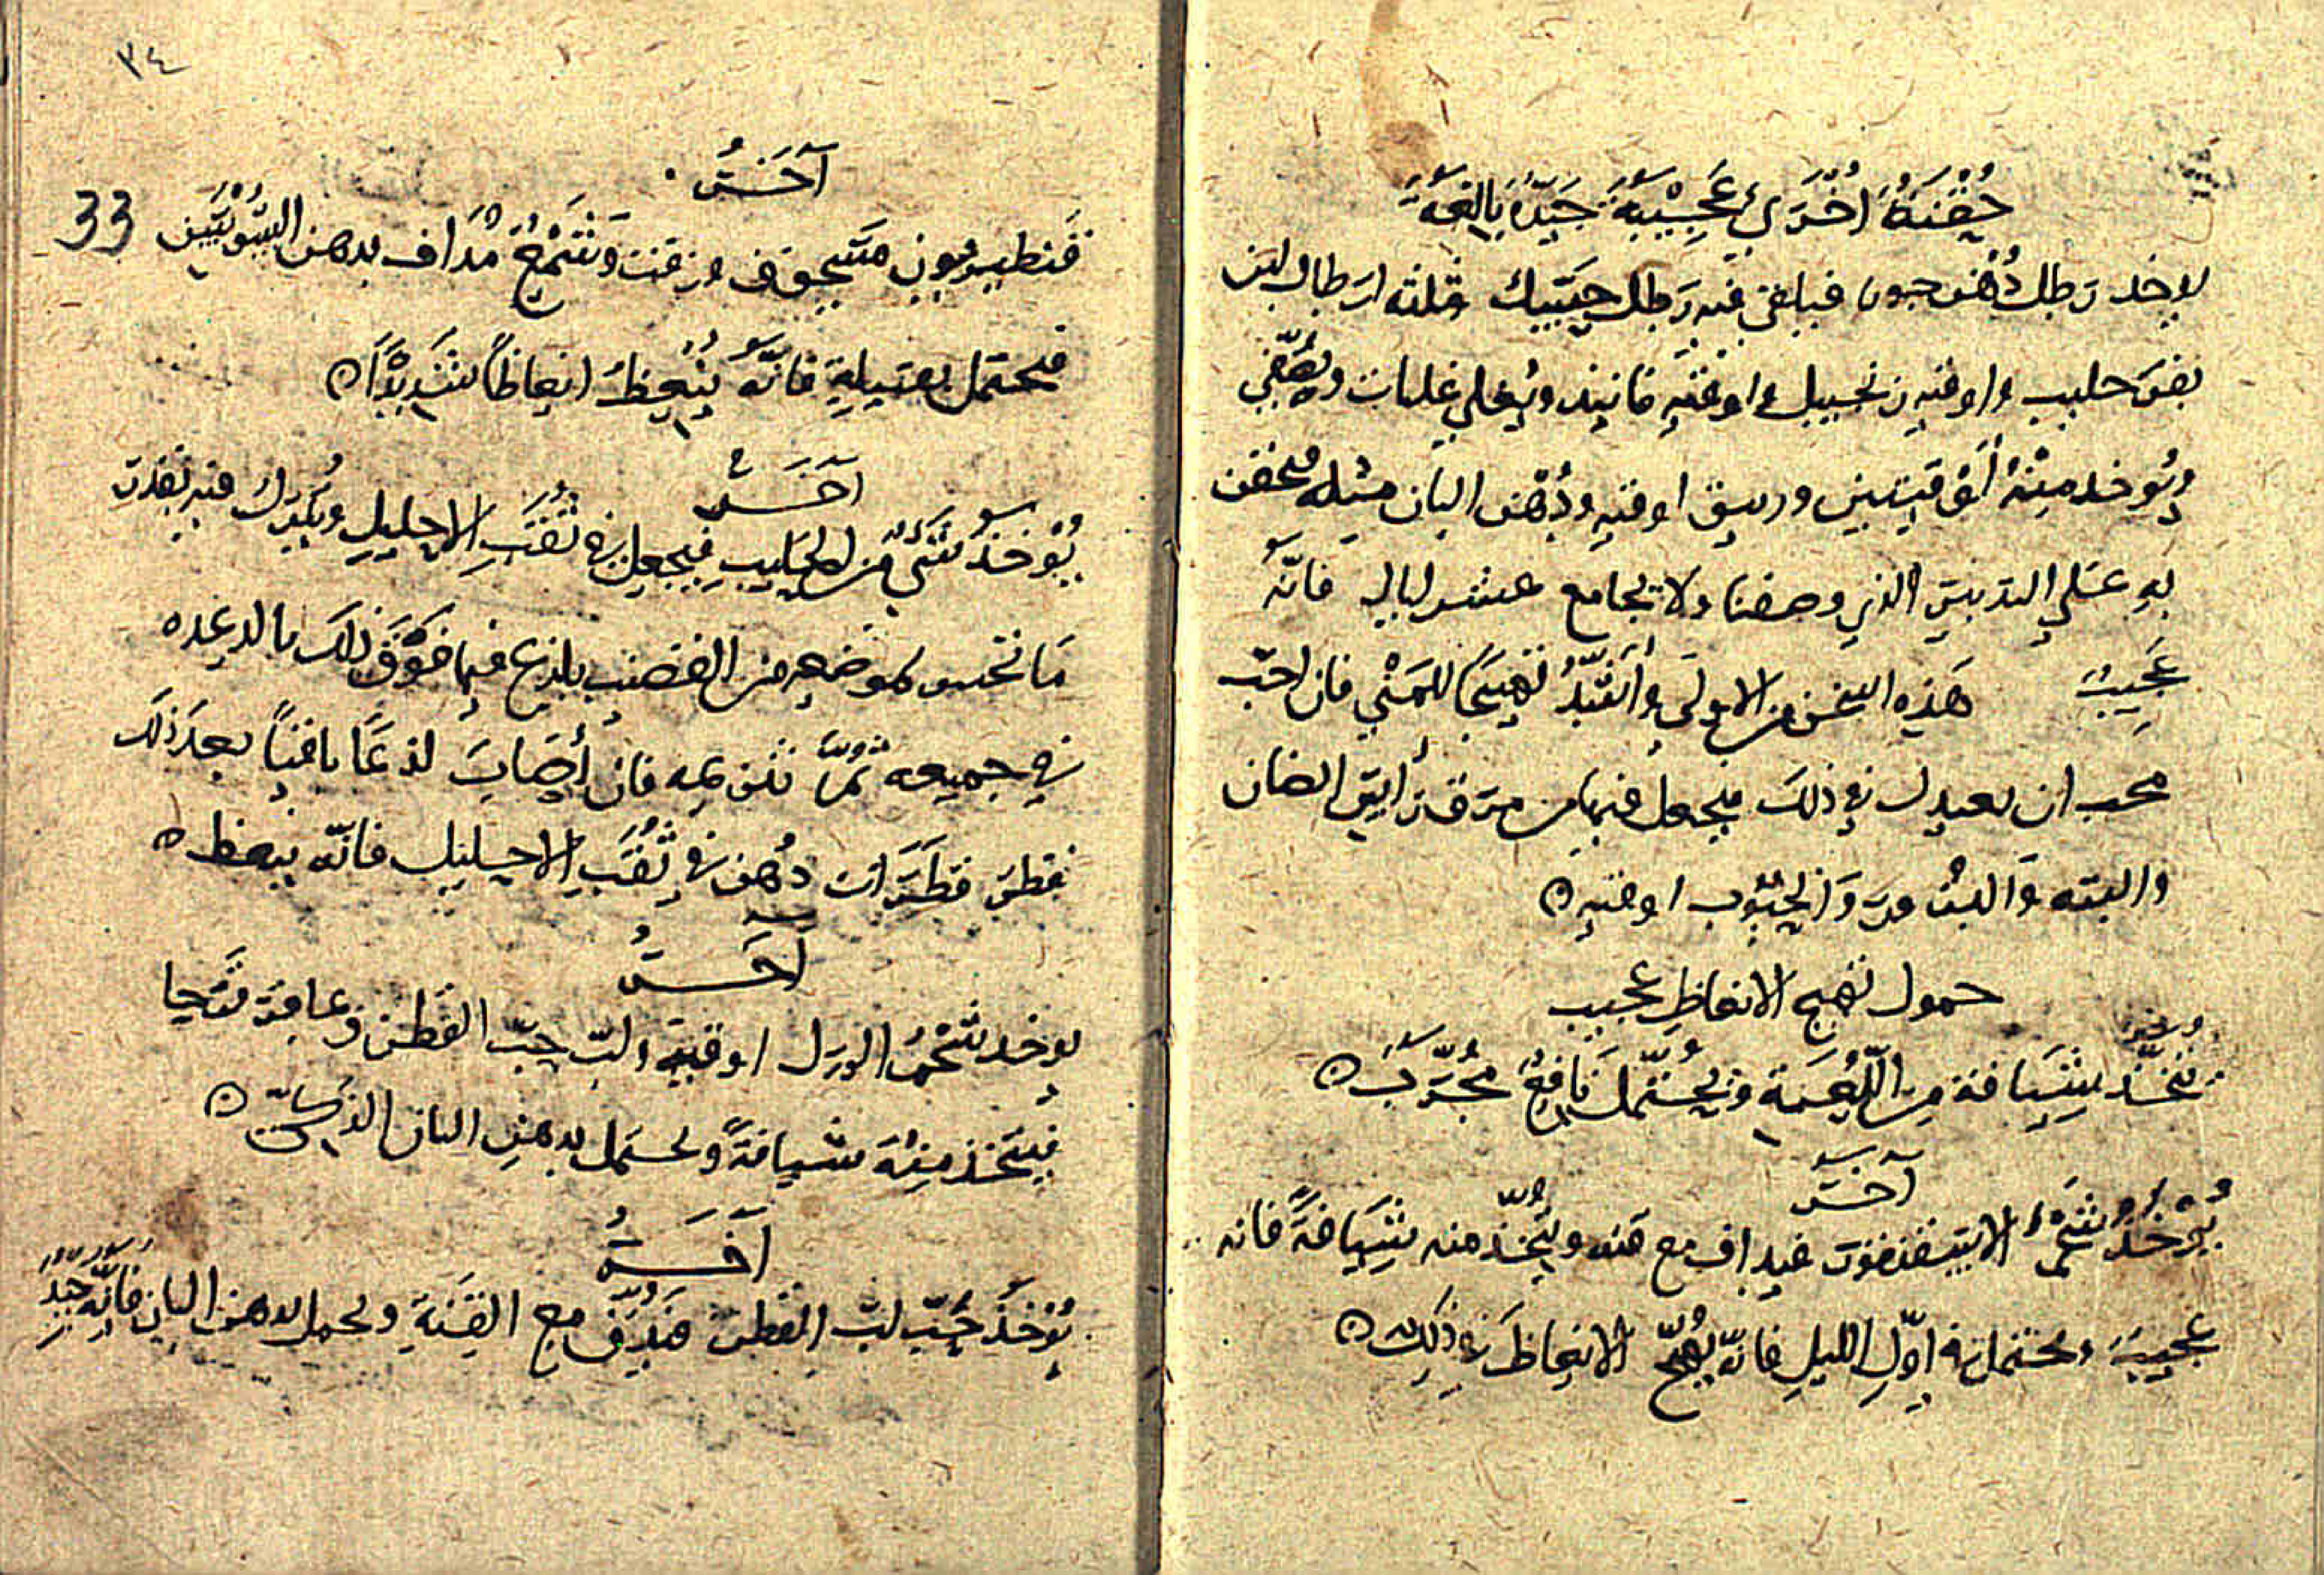 حُقْنَةٌ اُخْرَى عَجِيْبَةٌ جَيِّدَةٌ بَالِغَةٌ
يوخد رطل دُهْن جوز فيلقى فيه رطل حَسَك وثلثه ارطال لبن
بقر حليب واوقيه زنجبيل واوقيه فانيد ويُغلى غليات ويُصَفّى
ويُوخد مِنْهُ أُوْقيتين ورىىق اوقيه ودُهْن البان مثله فيحقن
بهِ عَلى التدبير الذي وصفنا ولا يجامع عشر ليالي فانّه
عَجِيبٌ هَذِه اسخن من الاولى وأَشَدُّ تَهييجًا للمَنْي فان احبّ
محب ان يعيد ذلك فيجعل فيها من مرق رأس الضان
واليته وَالبىْ قدر وَالحبُوب اوقيه ه
حمول تهيج الانعاظ عجيب
تُتّخَذ شِيَافة مِنَ اللُّعْبَة وتحْتَمَل نَافِعٌ مُجرَّبٌ ه
آخَر
يُوْخَذُ شَحْمُ الاسقنقور فيداف مع قنه ويُتّخذ منه شِيَافةً فانه
عجيب وتحتمل في اوّل الليل فانّه يُهيّج الانعاظ في ذلك ه
٣٤
آخَرُ
33
قَنطريون مَسحوق وزفت وَشَمْعٌ مُدَاف بدهن السَّوْسَن
فيحتمل بفتيلة فانَّهُ يُنْعِظُ انعاظاً شَديْدًا ه
آخَر
يُوْخَذ شَيْءٌ من الحليب فيجعل في ثُقْبَ الاحليل ويُترك فيه بقدر
مَا تحس بموضعه من القضيب يلذع فيما فَوْقَ ذلك بالدغده
في جميعه ثُمَّ تنقيه فان أَصَابَ لذعًا باقياً بعد ذَلك
فقطر قطَرَات دُهْن في ثُقْبَ الاحليل فانّه ينعظ ه
آخَرُ
يوخد شَحْم الورل اوقية ولبّ حبّ القطن وعاقر قرحا
فيتَّخذ مِنْهُ شيافةً وتحتمل بدهن البان الذكي ه
آخَرُ
يُوْخَذ حَبّ لبّ القطن فَيُدَقّ مع القِنّة ويحمل بدهن البان فانّه جَيّدٌ